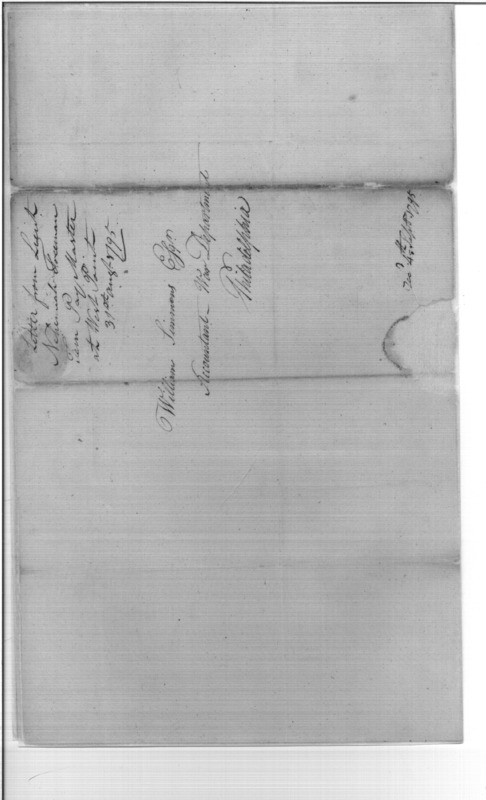 Letter from Lieut
Nehemiah Freeman
Pay Master
at West Point
31st Augt 1795
William Simmons Esqr
Accountant War Department
Philadelphia
Sept 1795